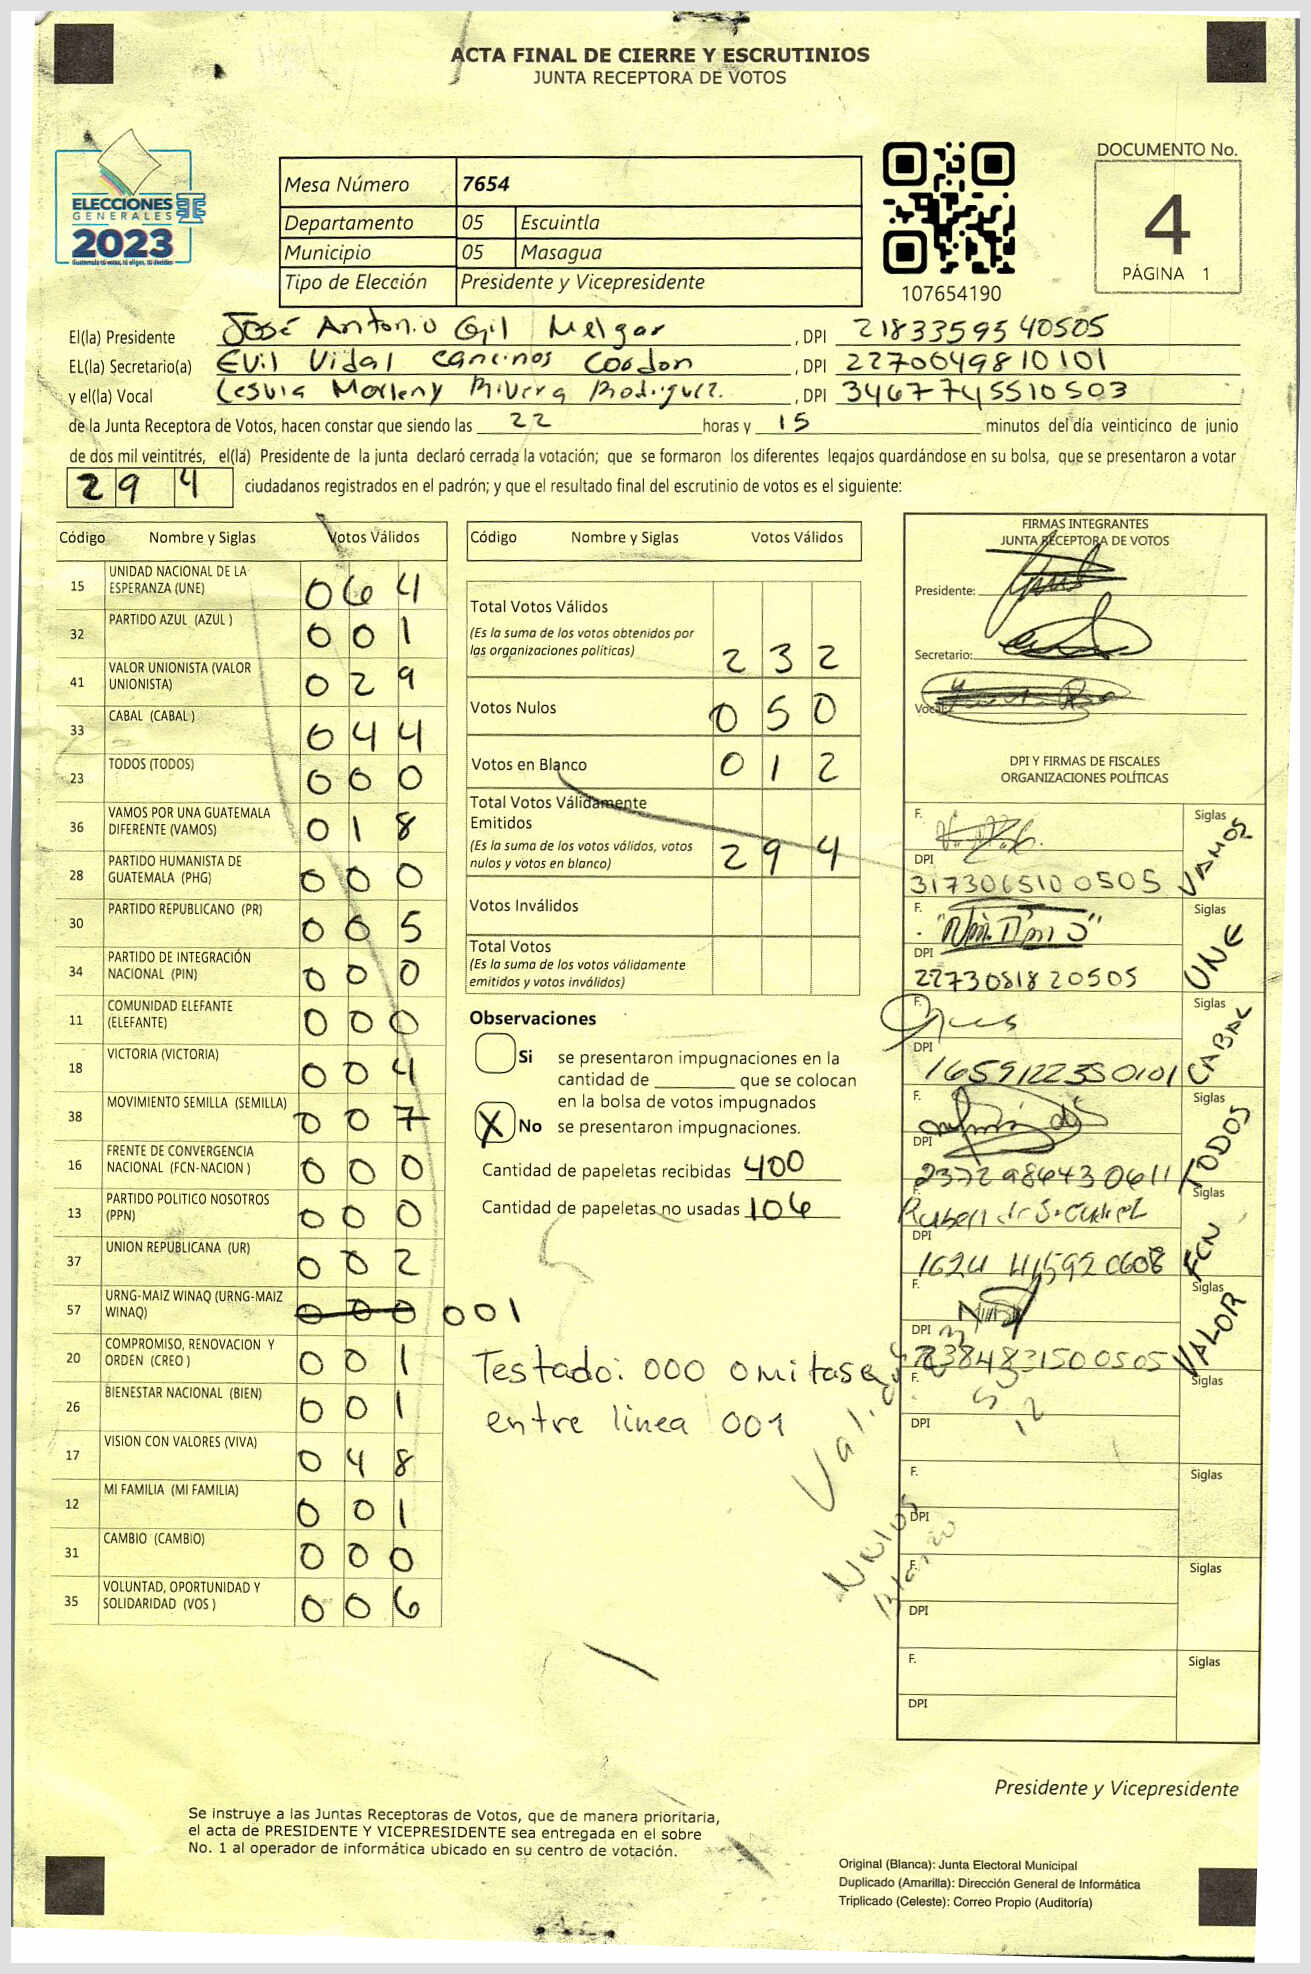 ACTA FINAL DE CIERRE Y ESCRUTINIOS
JUNTA RECEPTORA DE VOTOS
ELECCIONES
GENERALES
2023
Guatemala tú votas, tú eliges, tú decides
Mesa Número 7654
Departamento 05 Escuintla
Municipio 05 Masagua
Tipo de Elección Presidente y Vicepresidente
107654190
DOCUMENTO No.
4
PÁGINA 1
El(la) Presidente José Antonio Gil Melgar, DPI 2183359540505
EL(la) Secretario(a) Evil Vidal Cancinos Cordon, DPI 2270049810101
y el(la) Vocal Lesvia Marleny Rivera Rodriguez., DPI 3467745510503
de la Junta Receptora de Votos, hacen constar que siendo las 22 horas y 15 minutos del día veinticinco de junio
de dos mil veintitrés, el(la) Presidente de la junta declaró cerrada la votación; que se formaron los diferentes legajos guardándose en su bolsa, que se presentaron a votar
294 ciudadanos registrados en el padrón; y que el resultado final del escrutinio de votos es el siguiente:
Código Nombre y Siglas Votos Válidos
15 UNIDAD NACIONAL DE LA ESPERANZA (UNE) 064
32 PARTIDO AZUL (AZUL ) 001
41 VALOR UNIONISTA (VALOR UNIONISTA) 029
33 CABAL (CABAL ) 044
23 TODOS (TODOS) 000
36 VAMOS POR UNA GUATEMALA DIFERENTE (VAMOS) 018
28 PARTIDO HUMANISTA DE GUATEMALA (PHG) 000
30 PARTIDO REPUBLICANO (PR) 005
34 PARTIDO DE INTEGRACIÓN NACIONAL (PIN) 000
11 COMUNIDAD ELEFANTE (ELEFANTE) 000
18 VICTORIA (VICTORIA) 004
38 MOVIMIENTO SEMILLA (SEMILLA) 007
16 FRENTE DE CONVERGENCIA NACIONAL (FCN-NACION ) 000
13 PARTIDO POLITICO NOSOTROS (PPN) 000
37 UNION REPUBLICANA (UR) 002
57 URNG-MAIZ WINAQ (URNG-MAIZ WINAQ) 000 001
20 COMPROMISO, RENOVACION Y ORDEN (CREO ) 001
26 BIENESTAR NACIONAL (BIEN) 001
17 VISION CON VALORES (VIVA) 048
12 MI FAMILIA (MI FAMILIA) 001
31 CAMBIO (CAMBIO) 000
35 VOLUNTAD, OPORTUNIDAD Y SOLIDARIDAD (VOS ) 006
Código Nombre y Siglas Votos Válidos
Total Votos Válidos
(Es la suma de los votos obtenidos por
las organizaciones políticas) 232
Votos Nulos 050
Votos en Blanco 012
Total Votos Válidamente
Emitidos
(Es la suma de los votos válidos, votos
nulos y votos en blanco) 294
Votos Inválidos
Total Votos
(Es la suma de los votos válidamente
emitidos y votos inválidos)
Observaciones
Si se presentaron impugnaciones en la
cantidad de ________ que se colocan
en la bolsa de votos impugnados
X No se presentaron impugnaciones.
Cantidad de papeletas recibidas 400
Cantidad de papeletas no usadas 106
Testado: 000 omitase
entre linea 001
Nulos
Blanco
FIRMAS INTEGRANTES
JUNTA RECEPTORA DE VOTOS
Presidente:
Secretario:
Vocal:
DPI Y FIRMAS DE FISCALES
ORGANIZACIONES POLÍTICAS
F. Siglas VAMOS
DPI 3173065100505
F. Siglas UNE
DPI 2273081820505
F. Siglas CABAL
DPI 1659122350101
F. Siglas TODOS
DPI 2372986430611
F. Siglas FCN
DPI 1624 415920608
F. Siglas VALOR
DPI
F. Siglas
DPI
F. Siglas
DPI
F. Siglas
DPI
F. Siglas
DPI
Presidente y Vicepresidente
Se instruye a las Juntas Receptoras de Votos, que de manera prioritaria,
el acta de PRESIDENTE Y VICEPRESIDENTE sea entregada en el sobre
No. 1 al operador de informática ubicado en su centro de votación.
Original (Blanca): Junta Electoral Municipal
Duplicado (Amarilla): Dirección General de Informática
Triplicado (Celeste): Correo Propio (Auditoría)